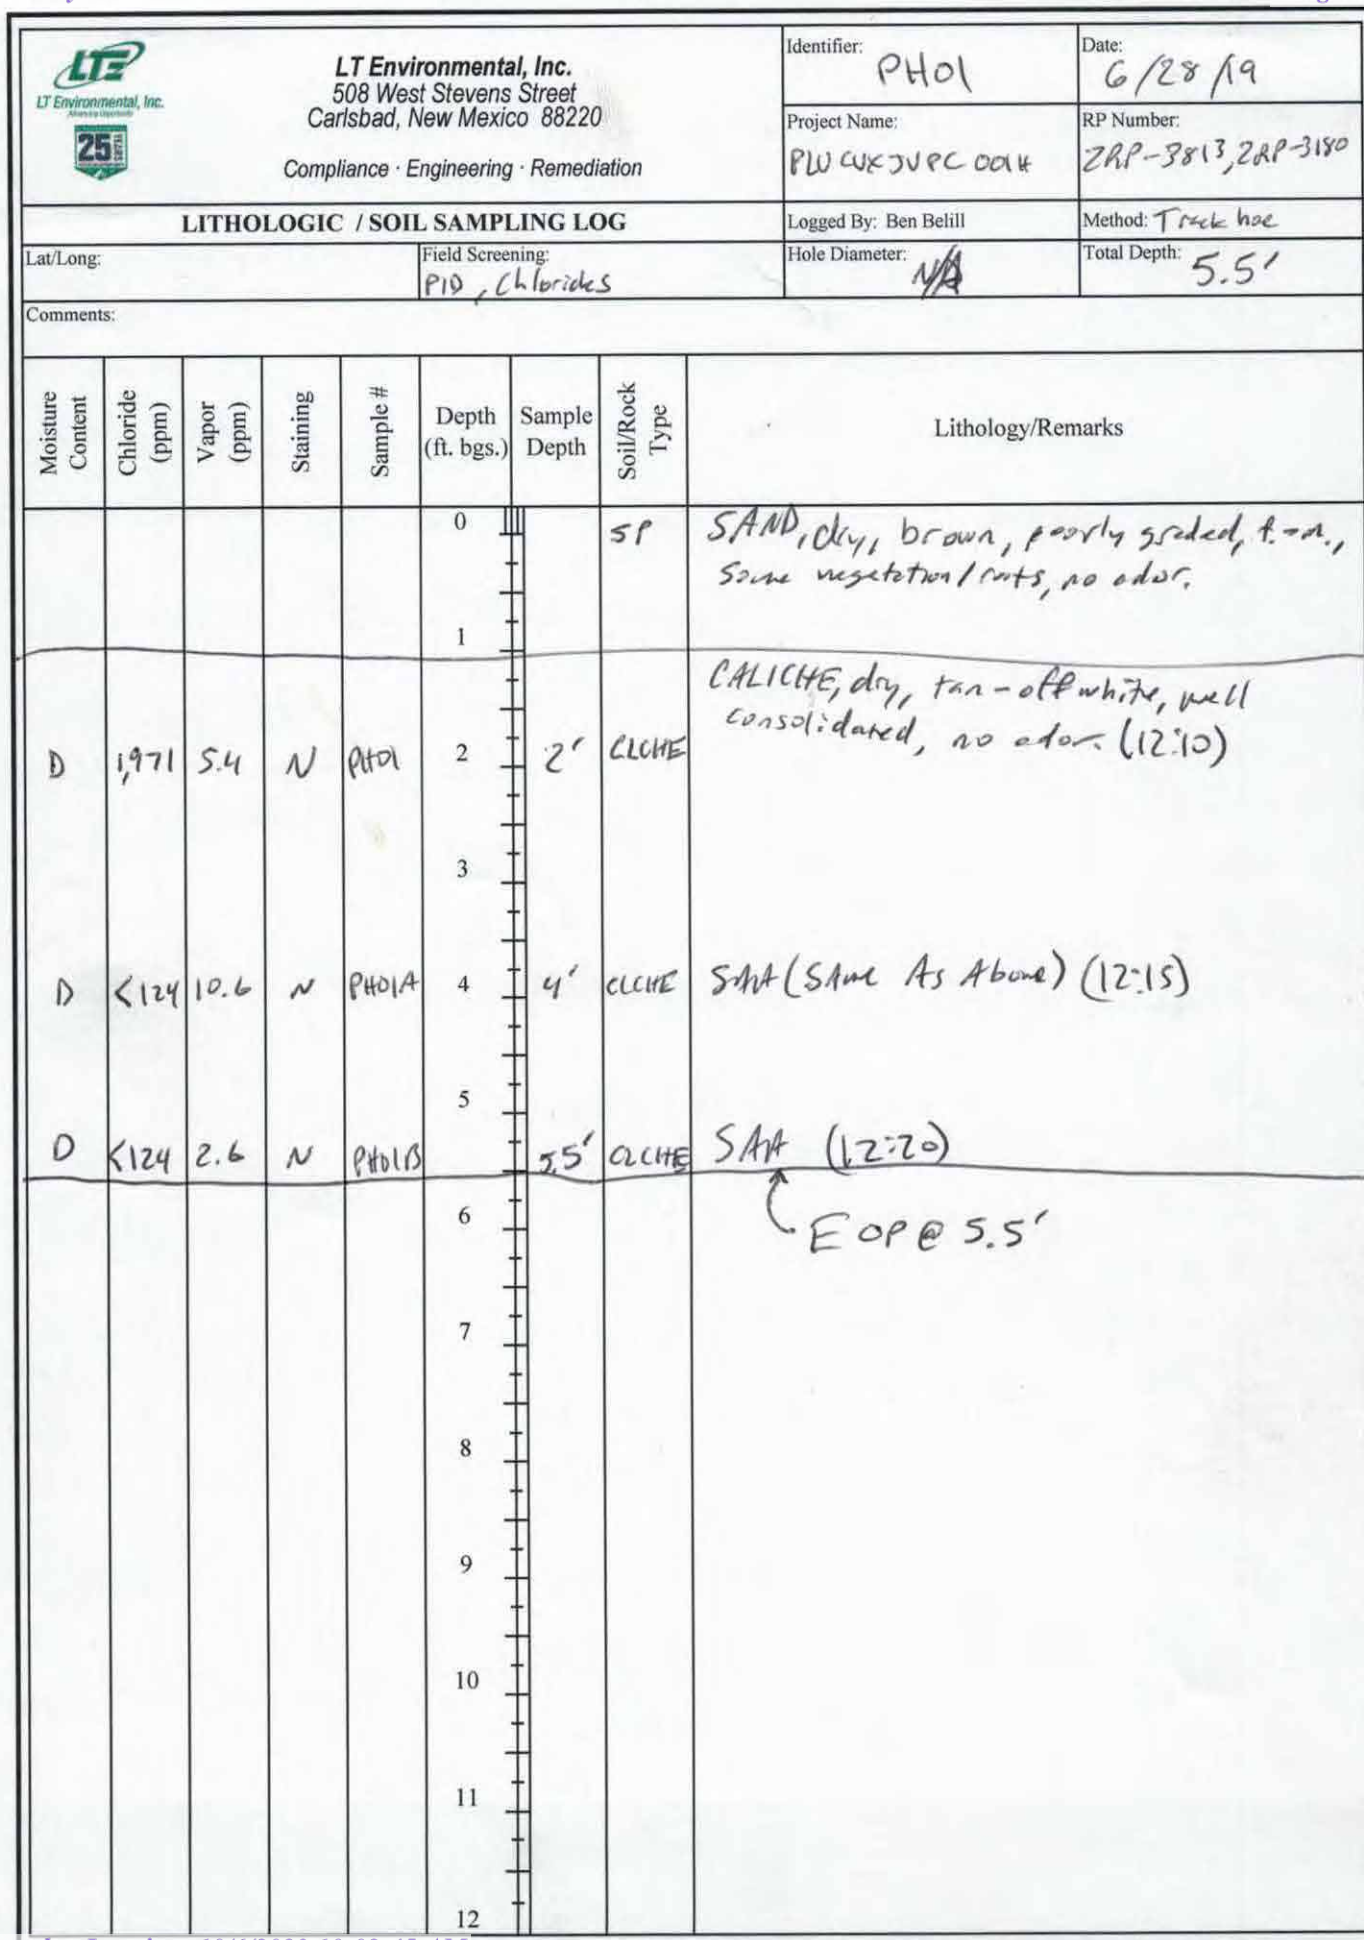 LTE
LT Environmental, Inc.
25 YEARS
LT Environmental, Inc.
508 West Stevens Street
Carlsbad, New Mexico 88220
Compliance · Engineering · Remediation
Identifier: PH01
Date: 6/28/19
Project Name:
PLU CVX JV PC 001H
RP Number:
2RP-3813, 2RP-3180
LITHOLOGIC / SOIL SAMPLING LOG
Logged By: Ben Belill
Method: Track hoe
Lat/Long:
Field Screening:
PID, Chlorides
Hole Diameter: N/A
Total Depth: 5.5'
Comments:
Moisture Content
Chloride (ppm)
Vapor (ppm)
Staining
Sample #
Depth (ft. bgs.)
Sample Depth
Soil/Rock Type
Lithology/Remarks
0 SP SAND, dry, brown, poorly graded, f.-m.,
some vegetation/roots, no odor.
1
CALICHE, dry, tan-off white, well
consolidated, no odor. (12:10)
D 1,971 5.4 N PH01 2 2' CLCHE
3
D <124 10.6 N PH01A 4 4' CLCHE SAA (Same As Above) (12:15)
5
D <124 2.6 N PH01B 5.5' CLCHE SAA (12:20)
6 EOP @ 5.5'
7
8
9
10
11
12